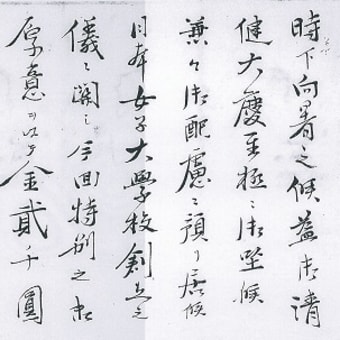 時下向暑之候益御清
健大慶至極ニ御坐候
兼々御配慮ニ預り居候
日本女子大學校創立之
儀ニ關シ今回特別之御
厚意ヲ以テ金貳千圓